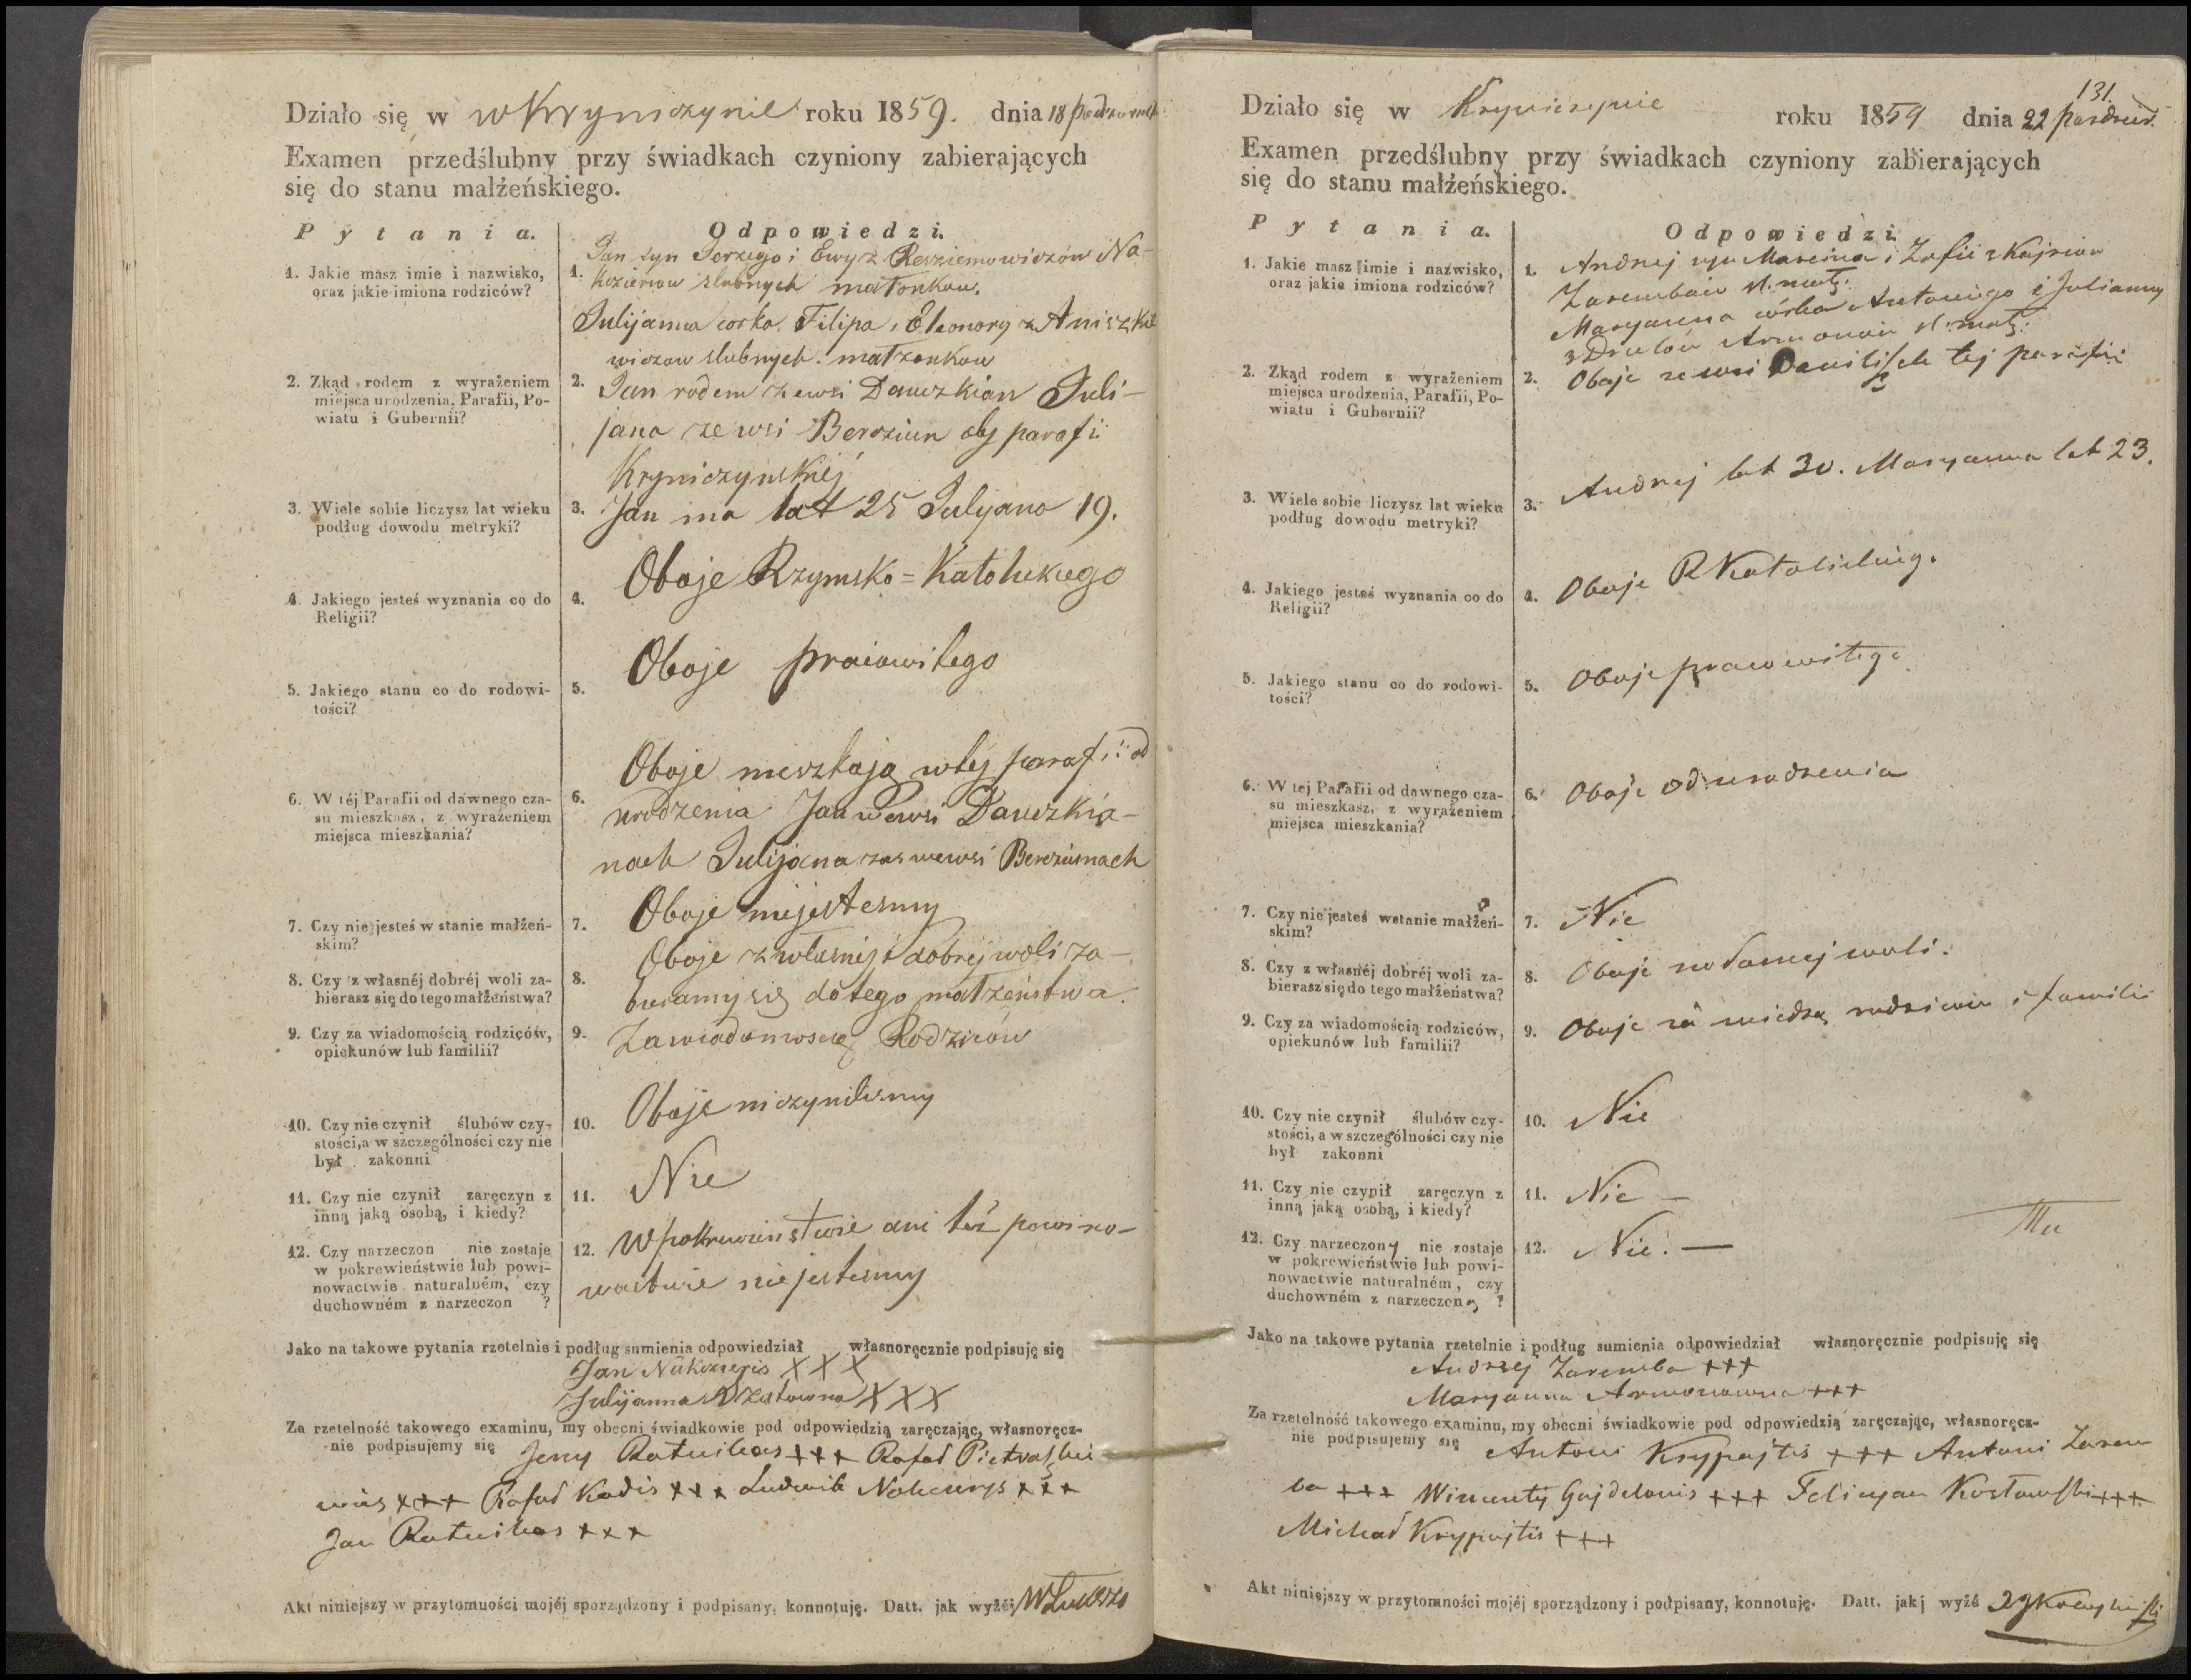 Działo się w w Kryniczynie roku 1859. dnia 18
Examen przedślubny przy świadkach czyniony zabierających
się do stanu małżeńskiego.
Pytania.
Odpowiedzi.
1. Jakie masz imie i nazwisko,
oraz jakie imiona rodziców?
1. Jan syn Jerzego i Ewy z Resziemowiczów Na-
slubnych małonkow.
Julijanna corka Filipa i Eleonory z Aniszkie
wiczow slubnych małzonkow
2. Zkąd rodem z wyrażeniem
miejsca urodzenia, Parafii, Po-
wiatu i Gubernii?
2. Jan rodem z ewsi Dauczkian Juli-
jana ze wsi Berciun obj parafii
Kryniczynskiéj
3. Wiele sobie liczysz lat wieku
podług dowodu metryki?
3. Jan ma lat 25 Julyana 19.
4. Jakiego jesteś wyznania co do
Religii?
4. Oboje Rzymsko=Katolickiego
5. Jakiego stanu co do rodowi-
tości?
5. Oboje prawowitego
6. W téj Parafii od dawnego cza-
su mieszkasz, z wyrażeniem
miejsca mieszkania?
6. Oboje mieszkają w téj parafii od
urodzenia Jan wewsi Dauczkia-
nach Julijana zas wewsi Berciunach
7. Czy nie jesteś w stanie małżeń-
skim?
7. Oboje niejestesmy
8. Czy z własnéj dobréj woli za-
bierasz się do tego małżeństwa?
8. Oboje z własnéj i dobréj woli za-
bieramy się do tego małzeństwa.
9. Czy za wiadomością rodziców,
opiekunów lub familii?
9. Zawiadomoscią Rodziców
10. Czy nie czynił ślubów czy-
stości, a w szczególności czy nie
był zakonni
10. Oboje nieczynilismy
11. Czy nie czynił zaręczyn z
inną jaką osobą, i kiedy?
11. Nie
12. Czy narzeczon nie zostaje
w pokrewieństwie lub powi-
nowactwie naturalném, czy
duchowném z narzeczon ?
12. W pokrewienstwie ani też powino-
wactwie niejestesmy
Jako na takowe pytania rzetelnie i podług sumienia odpowiedział własnoręcznie podpisuję się
Jan XXX
Julijanna XXX
Za rzetelność takowego examinu, my obecni świadkowie pod odpowiedzią zaręczając, własnoręcz-
nie podpisujemy się Jerzy Ratnikas +++ Rafał Pietraszkie
wicz +++ Rafał Kadis +++ Ludwik +++
Jan Ratnikas +++
Akt niniejszy w przytomności mojéj sporządzony i podpisany, konnotuję. Datt. jak wyżéj
131.
Działo się w Krynicznie roku 1859 dnia 22 pazdzier.
Examen przedślubny przy świadkach czyniony zabierających
się do stanu małżeńskiego.
Pytania.
Odpowiedzi.
1. Jakie masz imie i nazwisko,
oraz jakie imiona rodziców?
1. Andrzej syn Marcina i Zofii z
Zarembow sl. małż:
Maryanna córka Antoniego i Julianny
z Armonow sl: małż:
2. Zkąd rodem z wyrażeniem
miejsca urodzenia, Parafii, Po-
wiatu i Gubernii?
2. Oboje ze wsi Daniliszek tej parafii
3. Wiele sobie liczysz lat wieku
podług dowodu metryki?
3. Andrzej lat 30. Maryanna lat 23.
4. Jakiego jesteś wyznania co do
Religii?
4. Oboje R Katolickieg.
5. Jakiego stanu co do rodowi-
tości?
5. Oboje prawowitego
6. W tej Parafii od dawnego cza-
su mieszkasz, z wyrażeniem
miejsca mieszkania?
6. Oboje od urodzenia
7. Czy nie jesteś wstanie małżeń-
skim?
7. Nie
8. Czy z własnéj dobréj woli za-
bierasz się do tego małżeństwa?
8. Oboje woli.
9. Czy za wiadomością rodziców,
opiekunów lub familii?
9. Oboje za wiedzą rodziców i familii
10. Czy nie czynił ślubów czy-
stości, a w szczególności czy nie
był zakonni
10. Nie
11. Czy nie czynił zaręczyn z
inną jaką osobą, i kiedy?
11. Nie —
12. Czy narzeczony nie zostaje
w pokrewieństwie lub powi-
nowactwie naturalném, czy
duchowném z narzeczoną ?
12. Nie. —
Jako na takowe pytania rzetelnie i podług sumienia odpowiedział własnoręcznie podpisuję się
Andrzej Zaremba +++
Maryanna Armonowna +++
Za rzetelność takowego examinu, my obecni świadkowie pod odpowiedzią zaręczając, własnoręcz-
nie podpisujemy się Antoni Krypajtis +++ Antoni Zarem
ba +++ Wincenty Gajdelanis +++ Felicyan Kozłowski +++
Michał Krypajtis +++
Akt niniejszy w przytomności mojéj sporządzony i podpisany, konnotuję. Datt. jakj wyżé